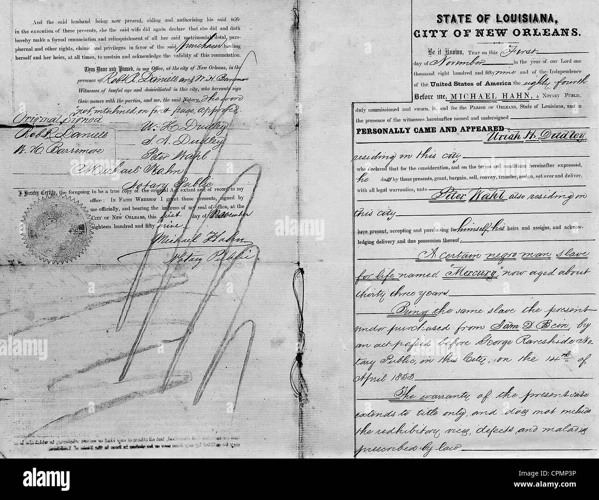 And the said husband being now present, aiding and authorising his said wife
in the execution of these presents, she the said wife did again declare that she did and doth
hereby make a formal renunciation and relinquishment of all her said matrimonial, total,
paraphernal and other rights, claims and privileges in favor of the said Purchaser binding
herself and her heirs, at all times, to sustain and acknowledge the validity of this renunciation.
Thus Done and Passed, in my Office, at the city of New Orleans, in the
presence of Robt R. Daniells and W. H. Barrimore
Witnesses of lawful age and domiciliated in this city, who hereunto sign
their names with the parties, and me, the said Notary.
Original Signed
W. H. Dudley
Robt R. Daniells
W. H. Barrimore
Peter Wahl
Michael Hahn
Notary Public
I Hereby Certify, the foregoing to be a true copy of the original
office; In Faith Whereof I grant these presents, signed by
me officially, and bearing the impress of my seal of office, at the
City of New Orleans, this first day of November
eighteen hundred and fifty nine
Michael Hahn
Notary Public
STATE OF LOUISIANA,
CITY OF NEW ORLEANS.
Be it Known, That on this First
day of November in the year of our Lord one
thousand eight hundred and fifty nine and of the Independence
of the United States of America the eighty fourth
Before me, MICHAEL HAHN, a Notary Public,
duly commissioned and sworn, in and for the PARISH OF ORLEANS, State of Louisiana, and in
the presence of the witnesses hereinafter named and undersigned
PERSONALLY CAME AND APPEARED Uriah H. Dudley
residing in this city
who declared that for the consideration, and on the terms and conditions hereinafter expressed,
he does by these presents, grant, bargain, sell, convey, transfer, assign, set over and deliver,
with all legal warranties, unto Peter Wahl also residing in
this city
here present, accepting and purchasing for himself, his heirs and assigns, and acknow-
ledging delivery and due possession thereof
A certain negro man slave
for life named Mercury now aged about
thirty three years.
Being the same slave the present
vendor purchased from Sam D
an act passed before George No-
tary Public, in this City, on the 14th of
April 1853
The warranty of the present sale
extends to title only, and does not include
the redhibitory vices, defects, and maladies
prescribed by law
alamy
alamy
alamy
alamy stock photo
CPMP3P